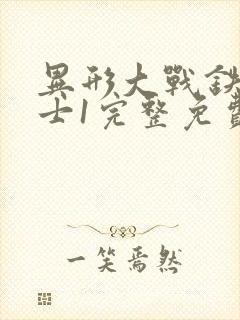 異形大戰鉄
士1完整免費
一笑焉然